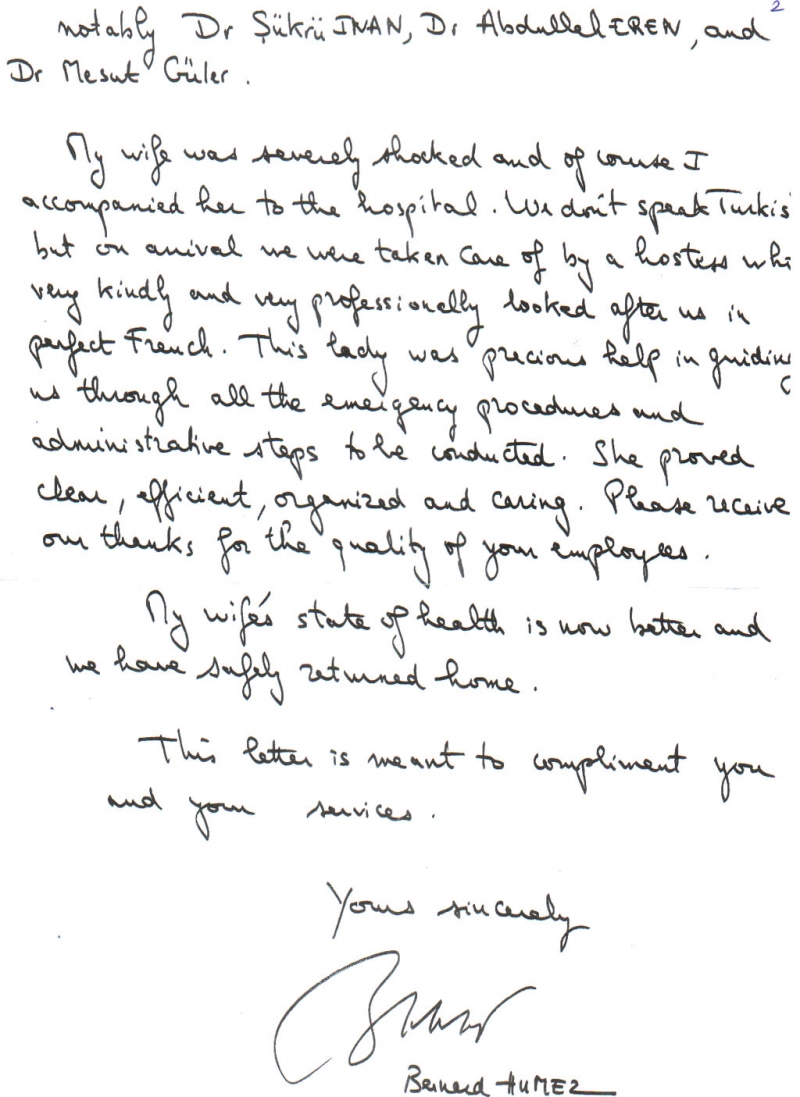 2
notably Dr Şükrü INAN, Dr Abdullah EREN, and
Dr Mesut Güler.
My wife was severely shocked and of course I
accompanied her to the hospital. We don't speak Turkis
but on arrival we were taken care of by a hostess wh
very kindly and very professionally looked after us in
perfect French. This lady was precious help in guiding
us through all the emergency procedures and
administrative steps to be conducted. She proved
clear, efficient, organized and caring. Please receive
our thanks for the quality of your employees.
My wife's state of health is now better and
we have safely returned home.
This letter is meant to compliment you
and your services.
Yours sincerely
Bernard HUMEZ